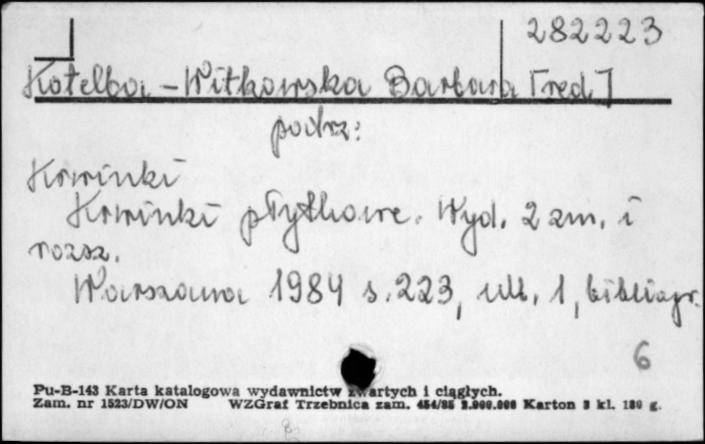 282223
Kotelba-Witkowska Barbara [red.]
podrz:
Krwinki
Krwinki płytkowe. Wyd. 2 zm. i
rozsz.
Warszawa 1984 s. 223, nlb. 1, bibliogr.
6
Pu-B-143 Karta katalogowa wydawnictw zwartych i ciągłych.
Zam. nr 1523/DW/ON WZGraf Trzebnica zam. 454/85 2.000.000 Karton 3 kl. 180 g.